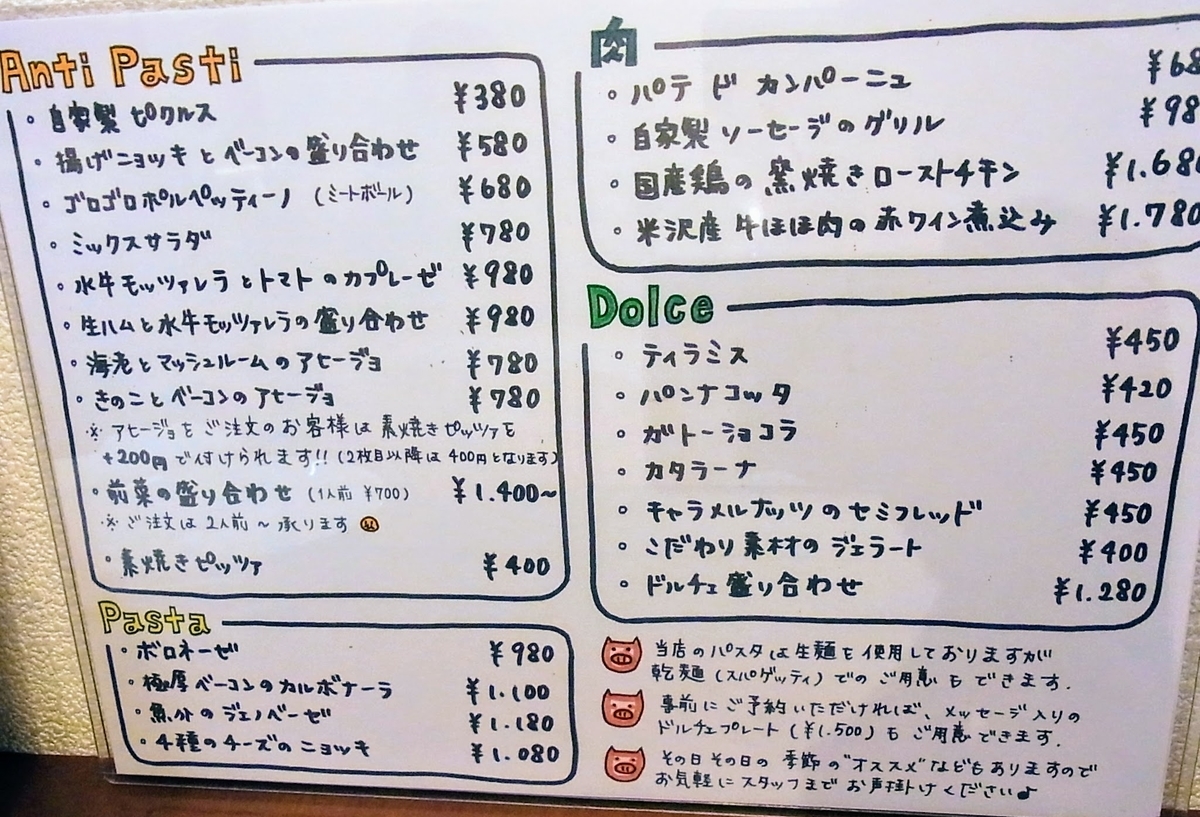 Anti Pasti
・自家製 ピクルス ¥380
・揚げニョッキとベーコンの盛り合わせ ¥580
・ゴロゴロポルペッティーノ (ミートボール) ¥680
・ミックスサラダ ¥780
・水牛モッツァレラとトマトのカプレーゼ ¥980
・生ハムと水牛モッツァレラの盛り合わせ ¥980
・海老とマッシュルームのアヒージョ ¥780
・きのことベーコンのアヒージョ ¥780
※アヒージョをご注文のお客様は素焼きピッツァを
+200円で付けられます!! (2枚目以降は400円となります)
・前菜の盛り合わせ (1人前 ¥700) ¥1.400~
※ご注文は2人前~承ります
・素焼きピッツァ ¥400
Pasta
・ボロネーゼ ¥980
・極厚ベーコンのカルボナーラ ¥1.100
・魚介のジェノベーゼ ¥1.180
・4種のチーズのニョッキ ¥1.080
肉
・パテ ド カンパーニュ ¥68
・自家製 ソーセージのグリル ¥98
・国産鶏の窯焼きローストチキン ¥1.680
・米沢産 牛ほほ肉の赤ワイン煮込み ¥1.780
Dolce
・ティラミス ¥450
・パンナコッタ ¥420
・ガトーショコラ ¥450
・カタラーナ ¥450
・キャラメルナッツのセミフレッド ¥450
・こだわり素材のジェラート ¥400
・ドルチェ盛り合わせ ¥1.280
当店のパスタは生麺を使用しておりますが
乾麺(スパゲッティ)でのご用意もできます.
事前にご予約いただければ、メッセージ入りの
ドルチェプレート(¥1.500)もご用意できます.
その日その日の季節の"オススメ"などもありますので
お気軽にスタッフまでお声掛けください♪